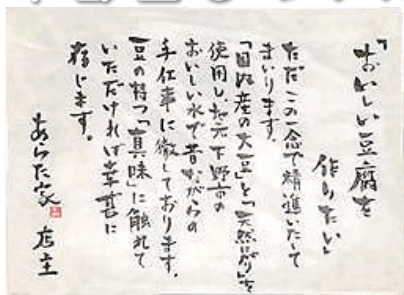 「おいしい豆腐を
作りたい」
ただこの一念で精進いたして
まいります。
「国内産の大豆」と「天然にがり」を
使用し、地元下野市の
おいしい水で昔ながらの
手仕事に徹しております。
豆の持つ「真味」に触れて
いただければ幸甚に
存じます。
あらた家 店主